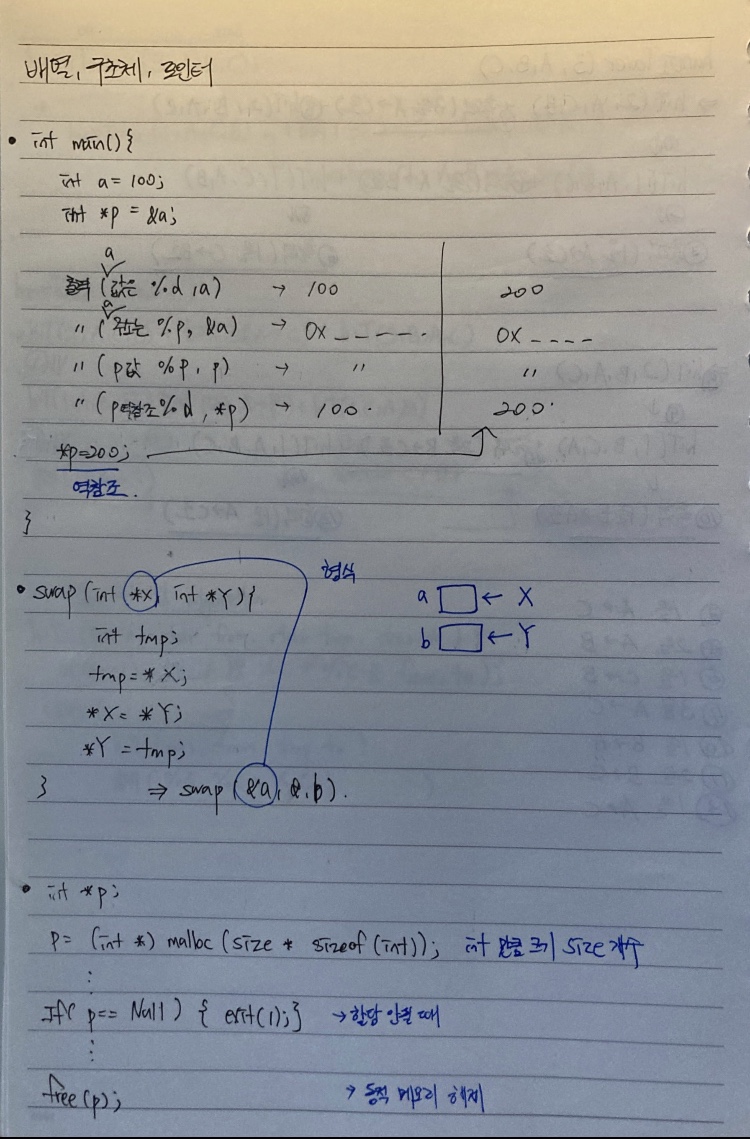 배열, 구조체, 포인터
• int main(){
int a = 100;
int *p = &a;
출력 (a 값은 %d, a) → 100 200
〃 (a 주소는 %p, &a) → 0X _ _ _ _ _ _ 0X _ _ _ _
〃 (p값 %p, p) → 〃 〃
〃 (p역참조 %d, *p) → 100. 200.
*p=200;
역참조.
}
형식
• swap (int *X, int *Y){ a ← X
int tmp; b ← Y
tmp = *X;
*X = *Y;
*Y = tmp;
} ⇒ swap (&a, &b).
• int *p;
p = (int *) malloc (size * sizeof (int)); int 만큼 크기 size 개수
⋮
If( p == Null ) { exit(1);} → 할당 안될 때
⋮
free(p); → 동적 메모리 해제